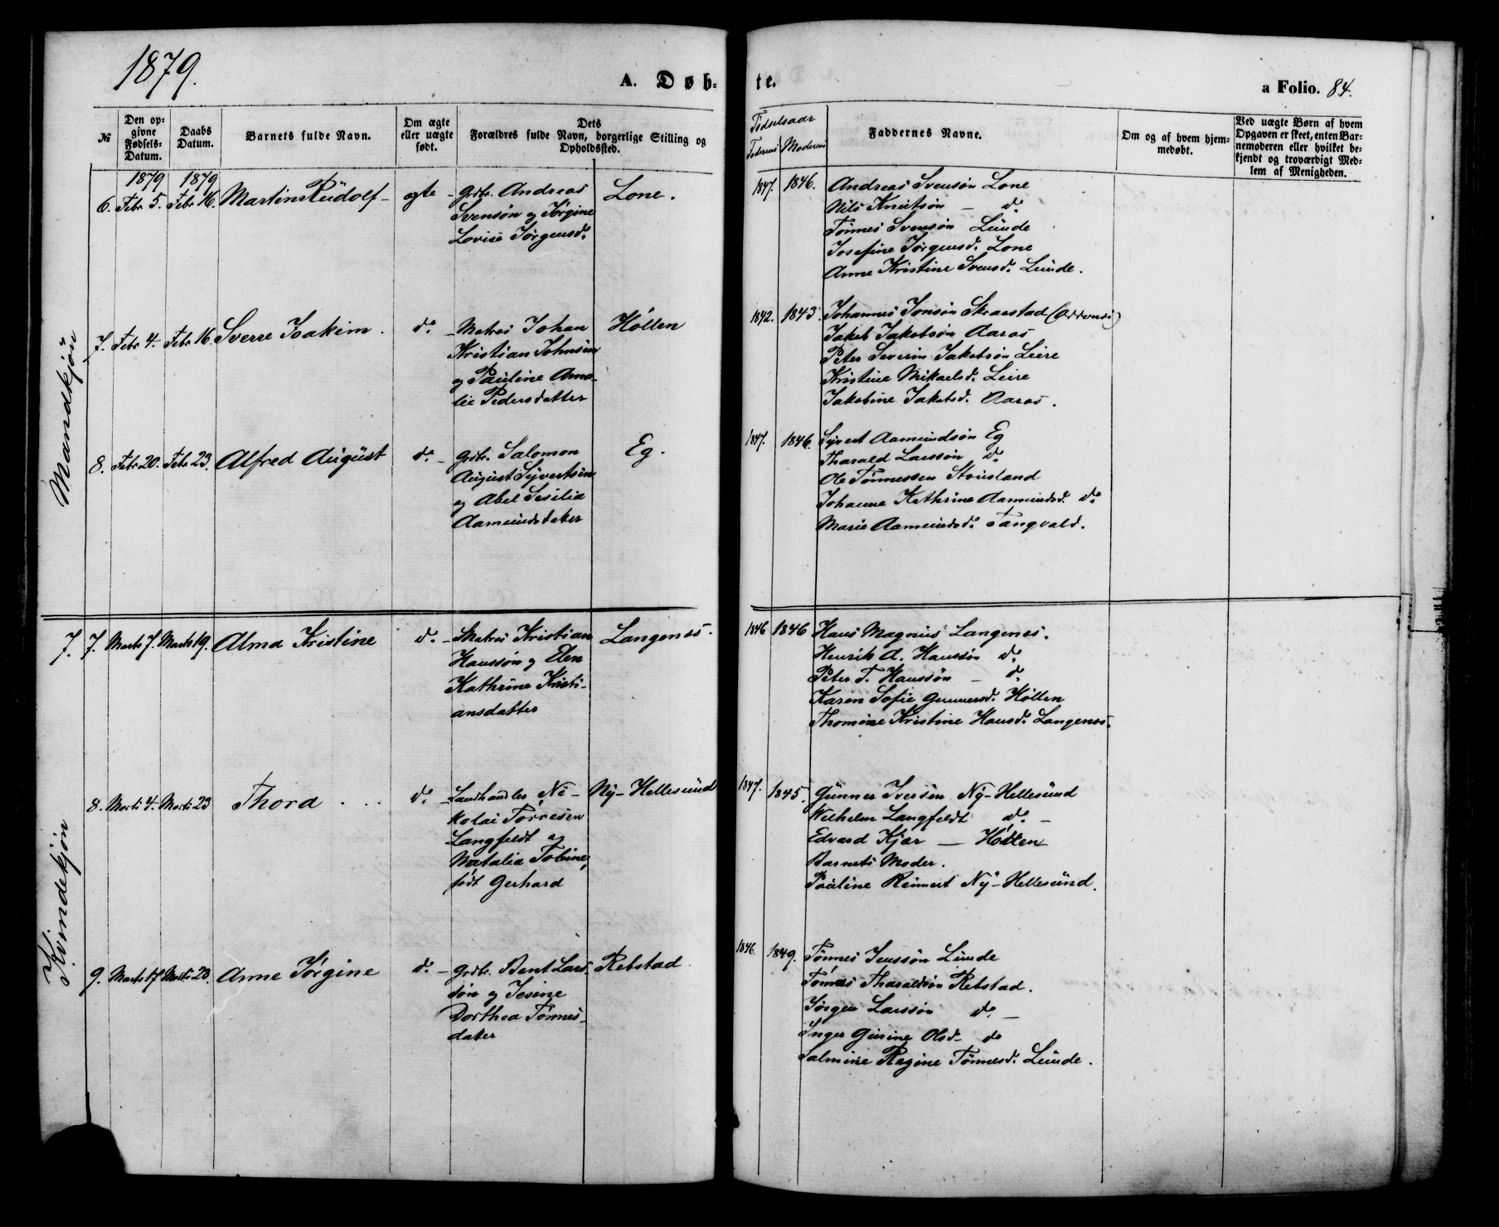 1879.
A. Døb-
te.
a Folio. 84.
№
Den op-
givne
Fødsels-
Datum.
Daabs
Datum.
Barnets fulde Navn.
Om ægte
eller uægte
født.
Dets
Forældres fulde Navn, borgerlige Stilling og
Opholdssted.
Fødselsaar
Faderens Moderens
Faddernes Navne.
Om og af hvem hjem-
medøbt.
Ved uægte Børn af hvem
Opgaven er skeet, enten Bar-
nemoderen eller hvilket be-
kjendt og troværdigt Med-
lem af Menigheden.
Mandkjön
1879 1879
6. Febr 5. Febr 16. Martin Rudolf - ægte - Grdbr. Andreas Lone.
Svensøn og Jørgine
Lovise Jørgensd.
1847. 1846. Andreas Svensøn Lone
Nils Knutsøn - do
Tønnes Svensøn Lunde
Josefine Jørgensd. Lone
Anne Kristine Svensd. Lunde.
7. Febr 4. Febr 16. Sverre Joakim. do - Matros Johan Høllen
Kristian Johnsen
og Pauline Ama-
lie Pedersdatter
1842. 1843. Johannes Jonsøn Skraastad (Oddernes)
Jakob Jakobsøn Aaros
Peter Severin Jakobsøn Leire
Kristine Mikaelsd. Leire
Jakobine Jakobsd. Aaros.
8. Febr 20. Febr 23. Alfred August do - Grdbr. Salomon Eg.
August Syvertsen
og Abel Sesilia
Aamundsdater
1847. 1846. Syvert Aamundsøn Eg
Tharald Larssøn do
Ole Tønnessen Stousland
Johanne Kathrine Aamundsd. do
Marie Aamundsd. Tangvald.
Kvindekjön
7. 7. Marts 7. Marts 19. Alma Kristine do - Matros Kristian Langenes.
Hanssøn og Elen
Kathrine Kristi-
ansdatter
1846 1846 Hans Magnus Langenes.
Henrik A. Hanssøn do
Peter T. Hanssøn - do
Karen Sofie Gunnersd. Høllen
Thomine Kristine Hansd. Langenes.
8. Marts 4. Marts 23 Thora ... do - Landhandler Ni- Ny-Hellesund
kolai Torresen
Langfeldt og
Natalia Tobine,
født Gerhard
1847. 1845. Gunner Iversøn Ny-Hellesund
Wilhelm Langfeldt do -
Edvard Kjær - Høllen
Barnets Moder.
Pauline Reinert Ny-Hellesund.
9. Marts 17 Marts 23. Anne Jørgine do - Grdbr. Bent Lars- Rebstad
søn og Jesine
Dorthea Tønnes-
dater
1846. 1849. Tønnes Jenssøn Lunde
Tønnes Tharaldsøn Rebstad.
Jørgen Larssøn do -
Inger Gurine Olsd - do
Salmine Regine Tønnesd. Lunde.